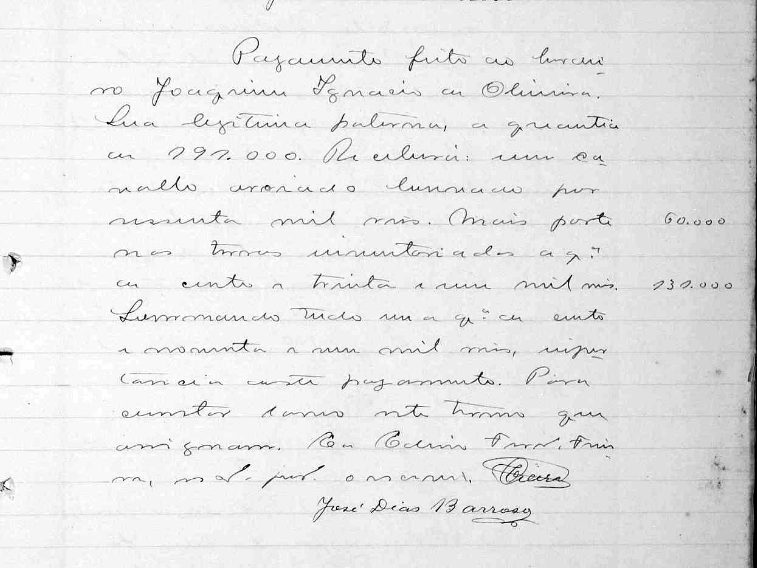 Pagamento feito ao herdei-
ro Joaquim Ignacio de Oliveira.
Sua legitima paterna, a quantia
de 191.000. Receberá: um ca-
vallo arreiado lunnado por
sessenta mil reis. Mais parte 60.000
nas terras inventariadas a q.ᵗⁱᵃ
de cento e trinta e um mil reis. 131.000
Sommando tudo em a q.ᵗⁱᵃ de cento
e noventa e um mil reis, impor-
tancia deste pagamento. Para
constar lavro este termo que
assignam. Eu
o escrevi. Vieira
José Dias Barroso